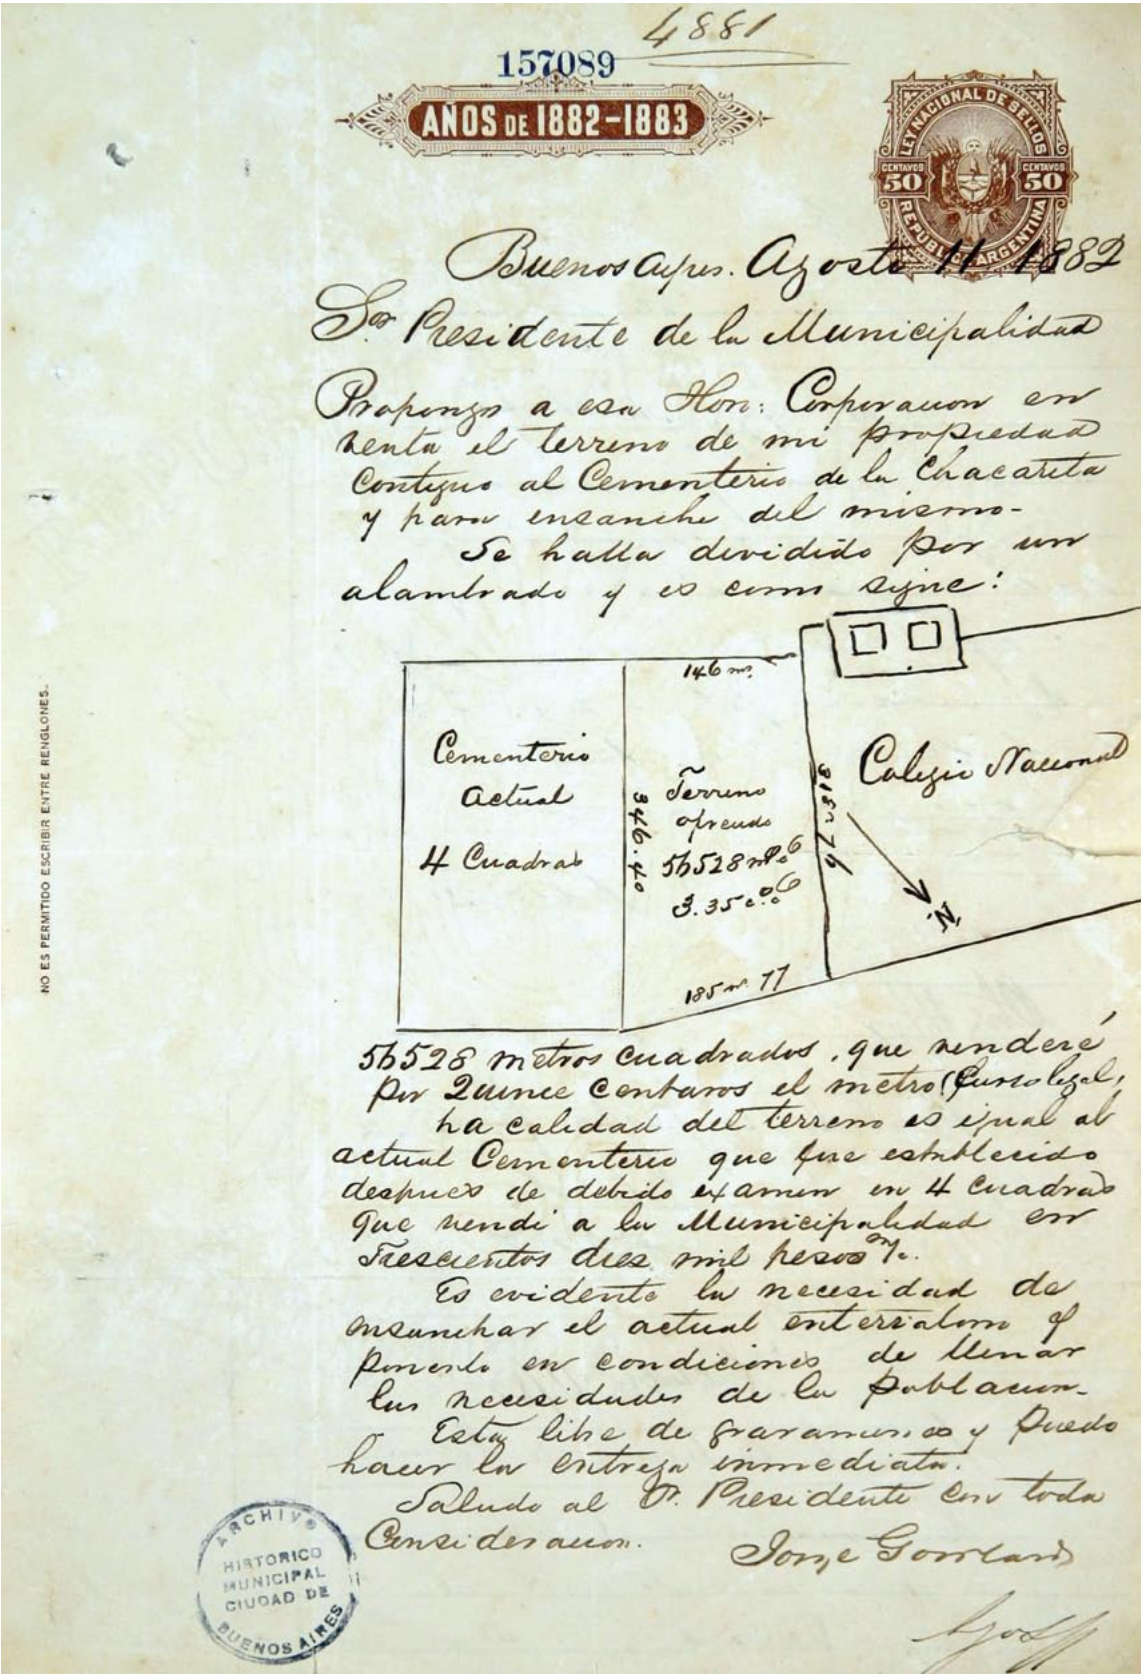 4881
157089
AÑOS DE 1882-1883
LEY NACIONAL DE SELLOS
CENTAVOS 50 CENTAVOS 50
REPUBLICA ARGENTINA
Buenos Ayres. Agosto 11 1882
Sor Presidente de la Municipalidad
Propongo a esa Hon: Corporacion en
venta el terreno de mi propiedad
contiguo al Cementerio de la Chacarita
y para ensanche del mismo-
Se halla dividido por un
alambrado y es como sigue:
146 ms.
Cementerio
actual
4 Cuadras
346.40
Terreno
ofrecido
56528
3.35
318 m 76
Colegio Nacional
N.
185 m. 77
NO ES PERMITIDO ESCRIBIR ENTRE RENGLONES.
56528 metros cuadrados, que venderé
por Quince Centavos el metro (Curso legal,
La calidad del terreno es igual al
actual Cementerio que fue establecido
despues de debido examen en 4 cuadras
que vendi a la Municipalidad en
Trescientos diez mil pesos m/c.
Es evidente la necesidad de
ensanchar el actual enterratorio y
ponerlo en condiciones de llenar
las necesidades de la poblacion.
Esta libre de gravamenes y puedo
hacer la entrega inmediata.
Saludo al Sr. Presidente con toda
Consideracion.
Jorge Gowland
ARCHIVO
HISTORICO
MUNICIPAL
CIUDAD DE
BUENOS AIRES